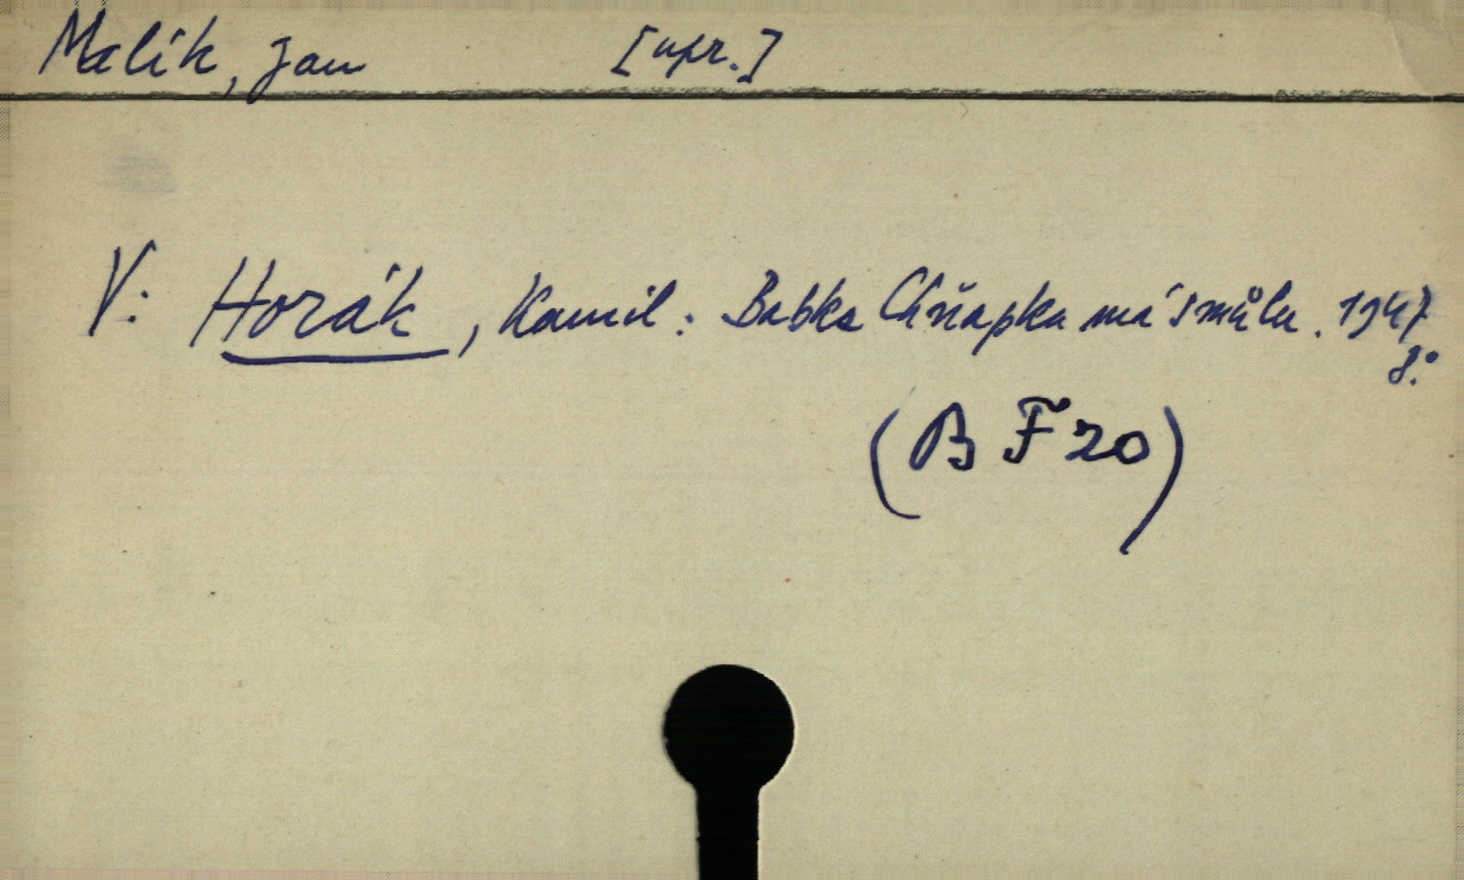 Malík, Jan [upr.]
V: Horák, Kamil: Babka Chňapka má smůlu. 1947
8°
(B F 20)